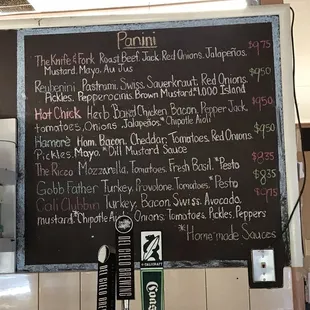 Panini
The Knife & Fork Roast Beef, Jack, Red Onions, Jalapeños, $9.75
Mustard, Mayo, Au Jus
Reubenini Pastrami, Swiss, Sauerkraut, Red Onions, $9.50
Pickles, Pepperocinis, Brown Mustard, *1,000 Island
Hot Chick Herb Baked Chicken, Bacon, Pepper Jack, $9.50
tomatoes, Onions, Jalapeños, *Chipotle Aioli
Ham, Bacon, Cheddar, Tomatoes, Red Onions $9.50
Pickles, Mayo, *Dill Mustard Sauce
The Ricco Mozzarella, Tomatoes, Fresh Basil, *Pesto $8.35
Gobb Father Turkey, Provolone, Tomatoes, *Pesto $8.35
Cali Gubbin Turkey, Bacon, Swiss, Avocado, $9.75
mustard, *Chipotle Aioli, Onions, Tomatoes, Pickles, Peppers
*Homemade Sauces
DEL CIELO BREWING
DEL CIELO BREWING CO.